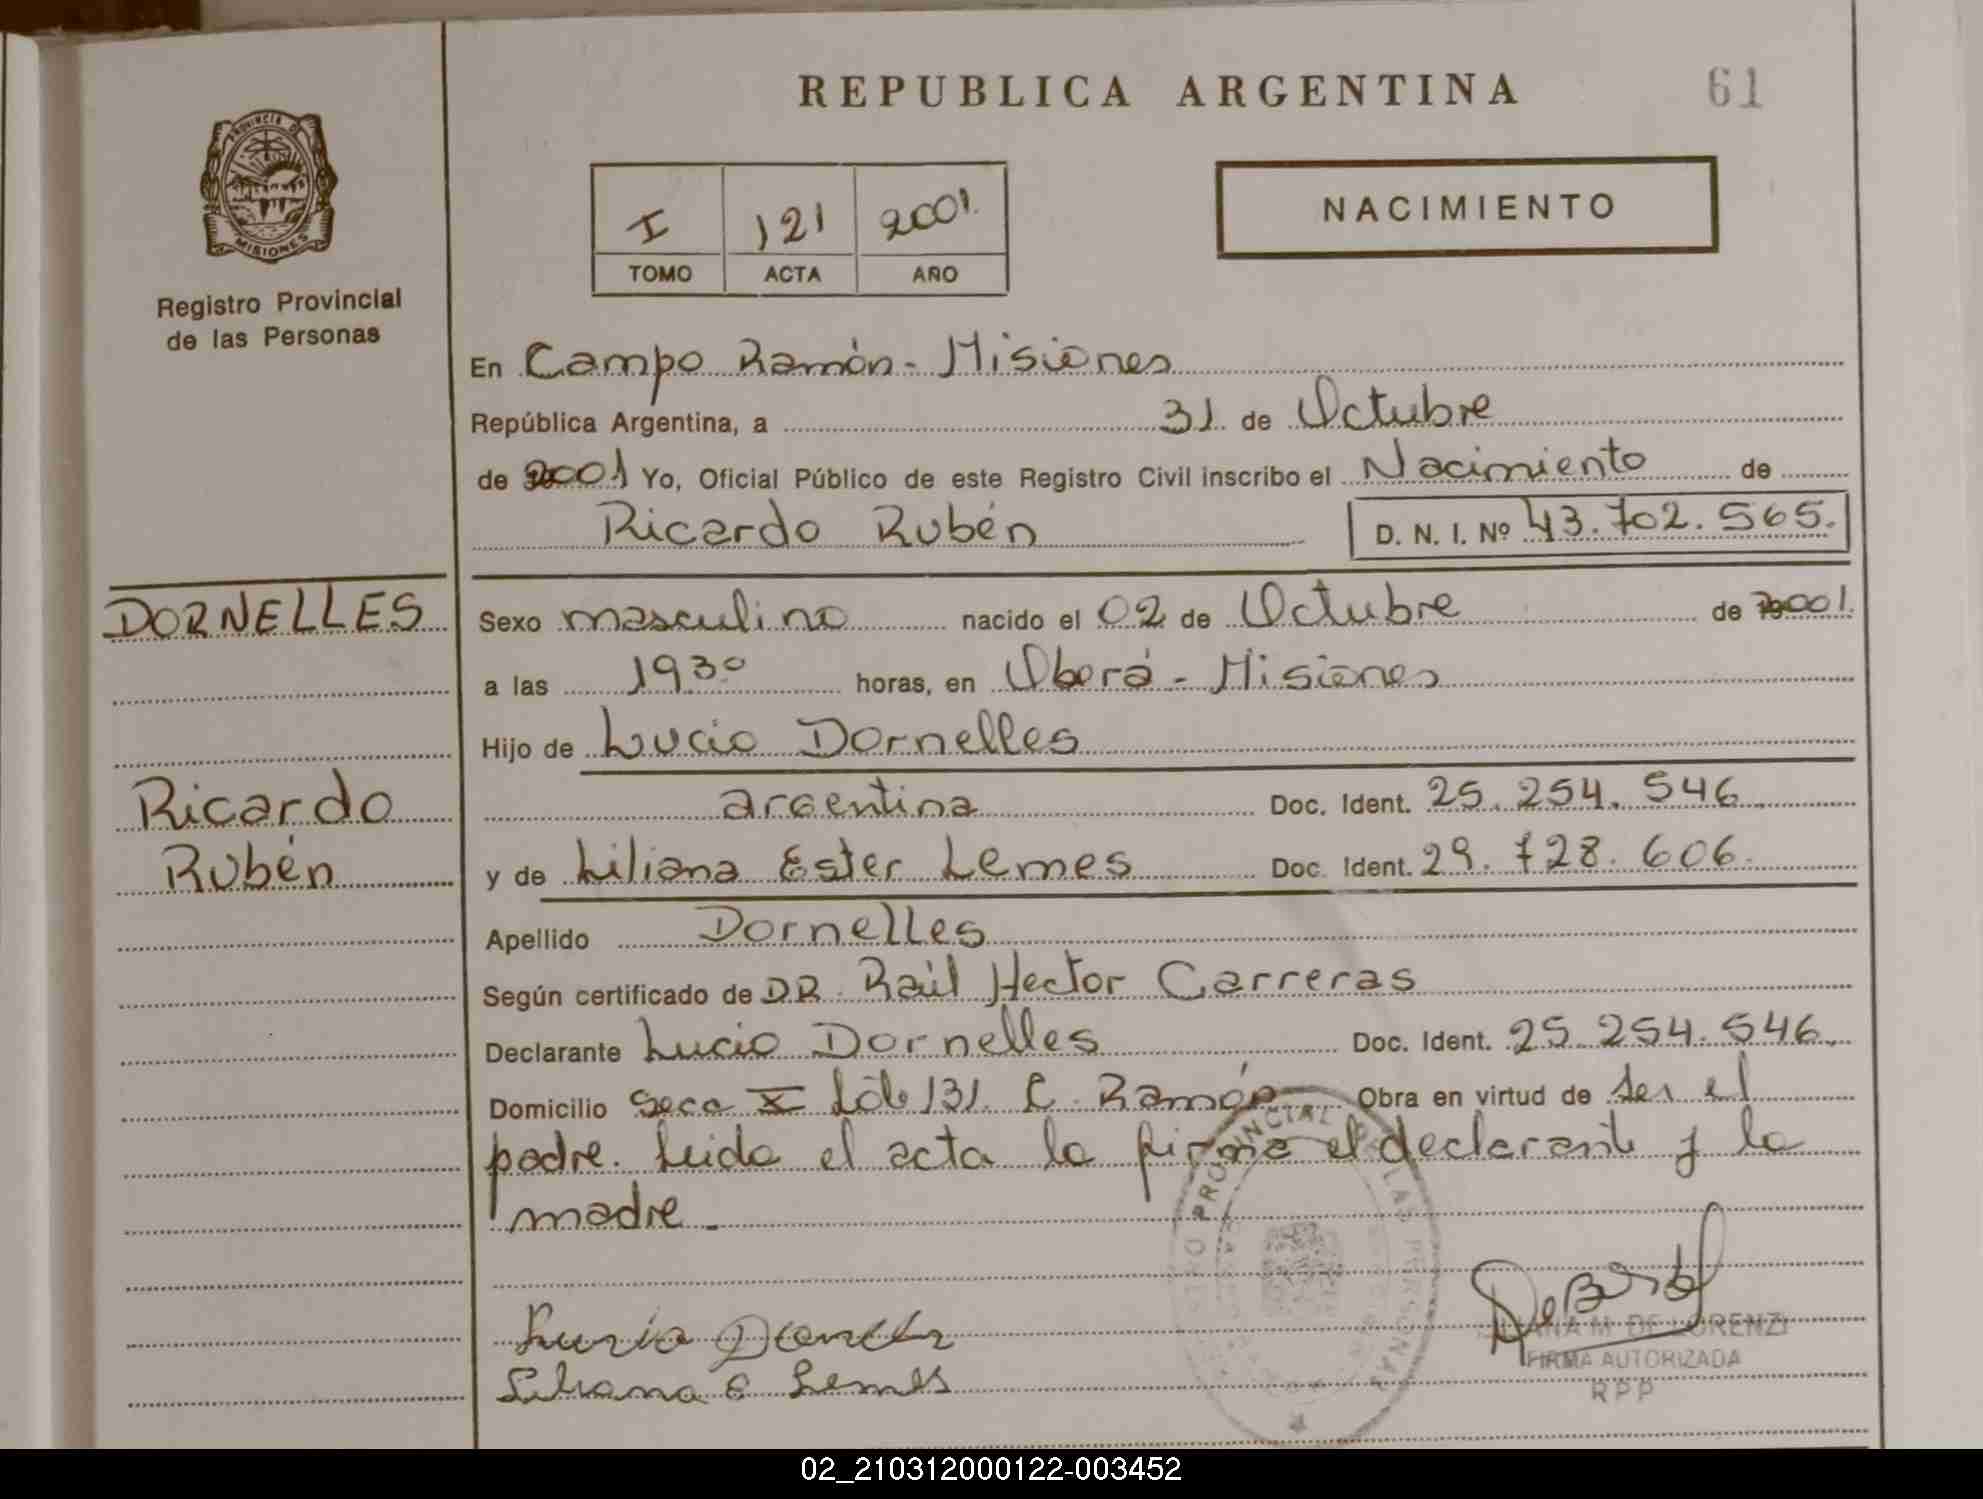 REPUBLICA ARGENTINA
61
PROVINCIA DE
MISIONES
Registro Provincial
de las Personas
I 121 2001.
TOMO ACTA AÑO
NACIMIENTO
En Campo Ramón - Misiones
República Argentina, a 31 de Octubre
de 2001 Yo, Oficial Público de este Registro Civil inscribo el Nacimiento de
Ricardo Rubén D. N. I. Nº 43.702.565.
DORNELLES
Ricardo
Rubén
Sexo masculino nacido el 02 de Octubre de 2001.
a las 19³⁰ horas, en Oberá - Misiones
Hijo de Lucio Dornelles
argentina Doc. Ident. 25.254.546
y de Liliana Ester Lemes Doc. Ident. 29.728.606.
Apellido Dornelles
Según certificado de DR. Raúl Hector Carreras
Declarante Lucio Dornelles Doc. Ident. 25.254.546.
Domicilio Secc X Lote 131 C. Ramón Obra en virtud de ser el
padre. Leida el acta la firma el declarante y la
madre.-
PROVINCIAL DE LAS PERSONAS
Liliana E Lemes
M. DE LORENZI
FIRMA AUTORIZADA
RPP
02_210312000122-003452